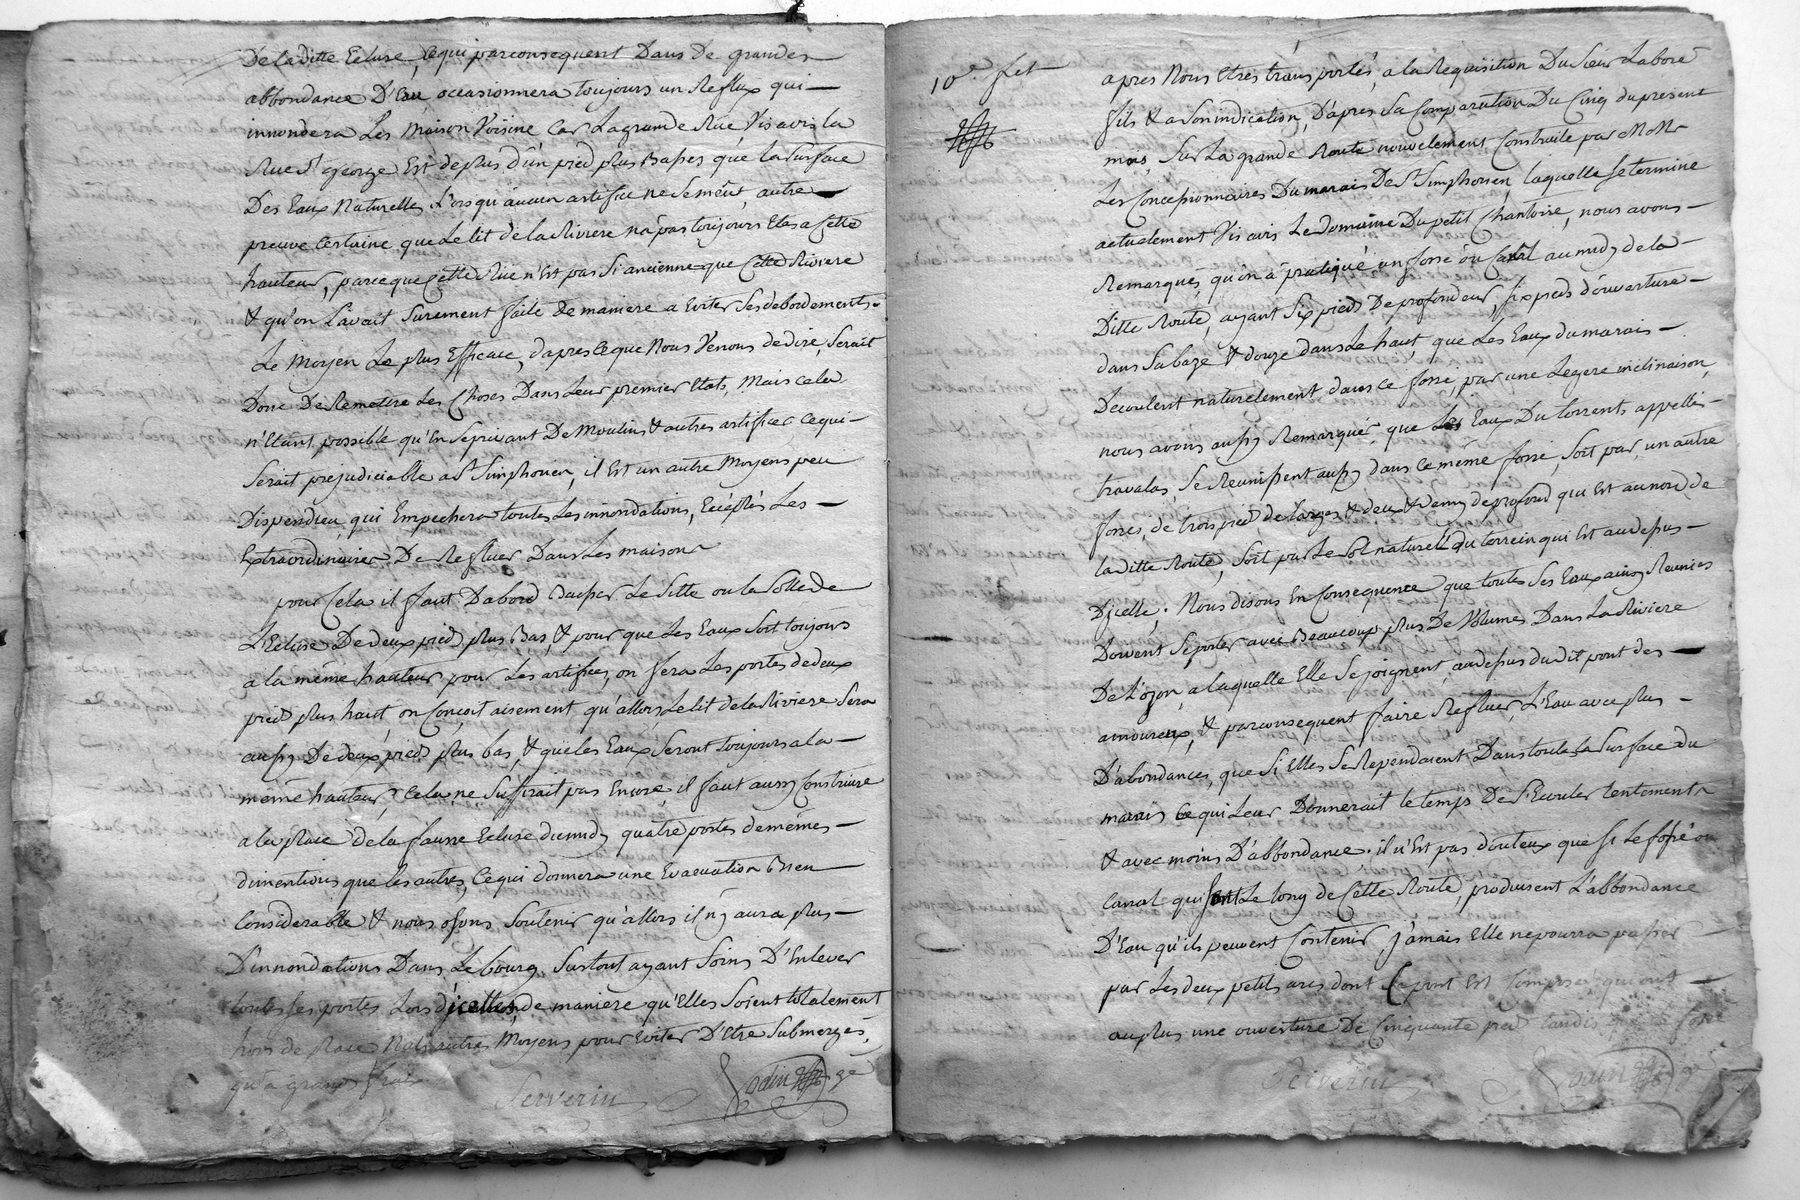 De la ditte Ecluse, Ce qui parconsequent Dans De grandes
abbondance D'Eau occasionnera toujours un Reflux qui
innondera Les Maison Voisine Car La grande Rüe Vis avis la
Rue St george Est de plus d'un pied plus Basses que la Surface
Des Eaux Naturelles Lorsqu'aucun artifice ne Semeüt, autre
preuve Certaine que Le lit de la Riviere n'a pas toujours Etes a Cette
hauteur, parceque Cette Rüe n'Est pas Si ancienne que Cette Riviere
& qu'on L'avait Surement faite de maniere a Eviter Ses debordements.
Le Moyen Le plus Efficace, d'apres Ce que Nous Venons de dire, Serait
Donc De Remettre Les Choses Dans Leur premier Etats, Mais cela
n'Etant possible qu'En Se privant De Moulins & autres artifices Ce qui
Serait prejudiciable a St Simphorien, il Est un autre Moyens peu
Dispendieu, qui Empechera toutes Les innondations, Exéptés Les
Extraordinaires De Refluer Dans Les maisons
pour Cela il faut D'abord Baisser Le Sitte ou la Solle de
L'Ecluse De deux pieds plus Bas, & pour que Les Eaux Soit toujours
a la même hauteur pour Les artifices, on fera Les portes de deux
pieds plus haut, on Conçoit aisement qu'allors Le lit de la Riviere Sera
aussy De deux pieds plus bas, & que les Eaux Seront toujours a la
même hauteur, Cela ne Suffirait pas Encore, il faut aussy Construire
a la place de la fausse Ecluse du midy quatre portes de mêmes
dimentions que les autres, Ce qui donnera une Evacuation Bien
Considerable & nous osons Soutenir qu'allors il n'y aura plus
D'innondations Dans Le bourg. Surtout ayant Soins D'Enlever
toutes les portes Lors d'icelles, de maniere qu'Elles Soient totalement
hors de place Nuls autres Moyens pour Eviter D'Etre Submergés,
qu'a grands frais
Serverin Jodin ge
10e fet
apres Nous Etres transportés, a la Requisition Du Sieur Laboré
fils & a Son indication, D'apres Sa Comparution Du Cinq du present
mois, Sur La grande Route nouvelement Construite par MMrs
Les Concessionnaires Du marais De St Simphorien laquelle Se termine
actuelement Vis avis Le Domaine Du petit Chantoire, nous avons
Remarqués, qu'on a pratiqué un fossé ou Canal au midy de la
Ditte Route, ayant Six pieds De profondeur, six pieds d'ouverture
dans Sa baze & douze dans Le haut, que Les Eaux du marais
Decoulent naturelement dans ce fossé, par une Legere inclinaison,
nous avons aussy Remarqués, que Les Eaux Du torrent, appellés
travalas, Se Reunissent aussy dans Ce même fossé, Soit par un autre
fosses, de trois pieds de Larges & deux & demy de profond qui Est au nord de
la ditte Route, Soit par Le Sol naturel du terrein qui Est au dessus
D'icelle; Nous disons En Consequence que toutes Ses Eaux ainsy Reunies
Doivent Se porter avec Beaucoup plus De Volumes Dans La Riviere
De L'ozon, a laquelle Elle Se joignent, au dessus du dit pont des
amoureux, & parconsequent faire Refluer L'Eau avec plus
D'abondances, que Si Elles Se Rependaient Dans toute la Surface du
marais Ce qui Leur Donnerait le temps De S'Ecouler lentement
& avec moins D'abbondance. il n'Est pas douteux que Si Le fossé ou
Canal qui sont Le long de Cette Route, produisent L'abbondance
D'Eau qu'ils peuvent Contenir, jamais Elle ne pourra passer
par Les deux petits arcs dont Ce pont Est Composé, qui ont
au plus une ouverture De Cinquante pied tandis que
Serverin Jodin ge